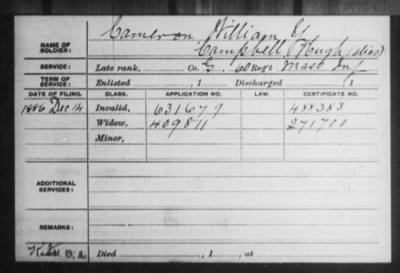 Cameron, William E
NAME OF SOLDIER: Campbell, Hugh (alias)
SERVICE: Late rank, Co. G, 60 Reg't Mass Inf
TERM OF SERVICE: Enlisted , 1 Discharged , 1
DATE OF FILING. CLASS. APPLICATION NO. LAW. CERTIFICATE NO.
1886 Dec 14 Invalid, 631679 488383
Widow, 409811 271700
Minor,
ADDITIONAL SERVICES:
REMARKS:
Died , 1 , at